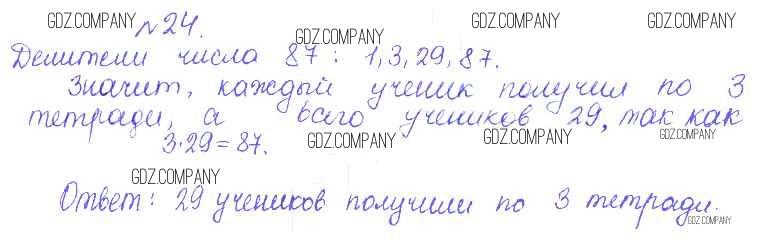 GDZ.COMPANY GDZ.COMPANY GDZ.COMPANY
№24.
GDZ.COMPANY
Делители числа 87 : 1, 3, 29, 87.
Значит, каждый ученик получил по 3
тетради, а всего учеников 29, так как
GDZ.COMPANY GDZ.COMPANY GDZ.COMPANY
3·29=87.
GDZ.COMPANY
Ответ: 29 учеников получили по 3 тетради.
GDZ.COMPANY